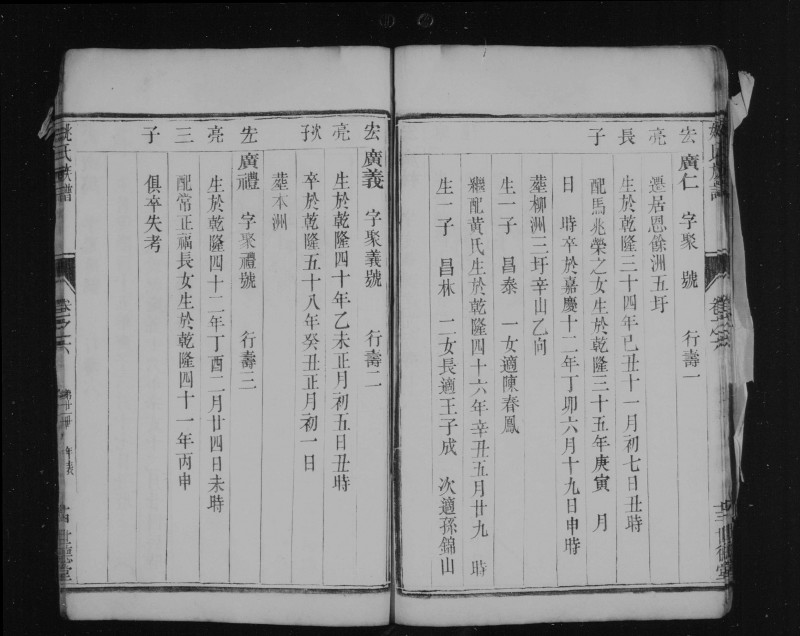 宏 廣仁 字聚 號 行壽一
亮 遷居恩餘洲五圩
長 生於乾隆三十四年己丑十一月初七日丑時
子 配馬兆榮之女生於乾隆三十五年庚寅 月
日 時卒於嘉慶十二年丁卯六月十九日申時
塟柳洲三圩辛山乙向
生一子 昌泰 一女適陳春鳳
繼配黃氏生於乾隆四十六年辛丑五月廿九 時
生一子 昌林 二女長適王子成 次適孫錦山
宏 廣義 字聚義號 行壽二
亮 生於乾隆四十年乙未正月初五日丑時
次子 卒於乾隆五十八年癸丑正月初一日
塟本洲
宏 廣禮 字聚禮號 行壽三
亮 生於乾隆四十二年丁酉二月廿四日未時
三 配常正福長女生於乾隆四十一年丙申
子 俱卒失考
姚氏族譜 卷之六 年表 世德堂